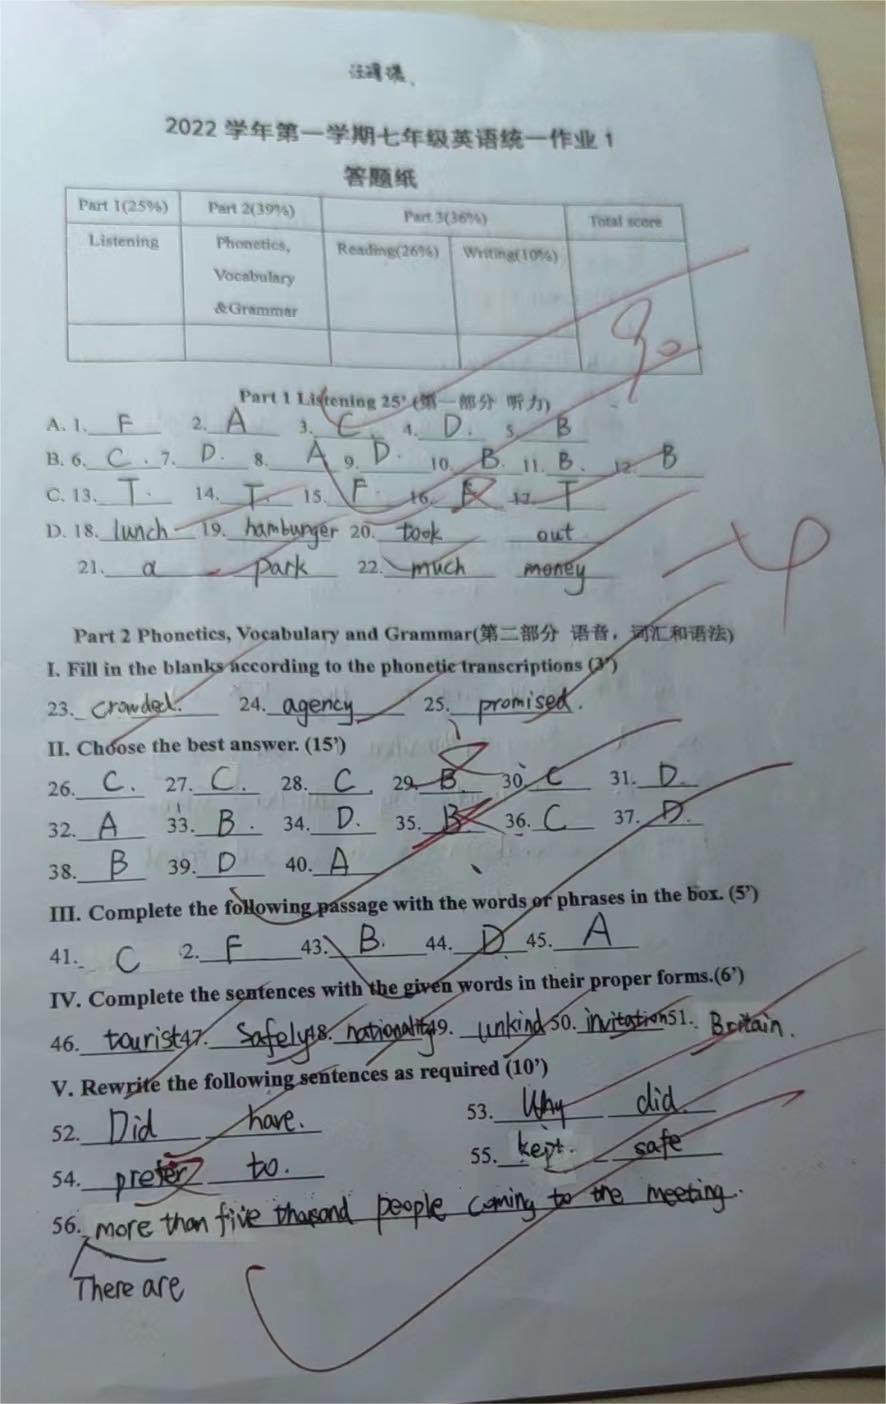 2022 学年第一学期七年级英语统一作业 1
答题纸
Part 1(25%) Part 2(39%) Part 3(36%) Total score
Listening Phonetics, Vocabulary &Grammar Reading(26%) Writing(10%)
90
Part 1 Listening 25' (第一部分 听力)
A. 1. F 2. A 3. C 4. D. 5. B
B. 6. C . 7. D. 8. A 9. D. 10. B. 11. B. 12. B
C. 13. T. 14. T. 15. F. 16. 17. T
D. 18. lunch 19. hamburger 20. took out
21. a park 22. much money
Part 2 Phonetics, Vocabulary and Grammar(第二部分 语音，词汇和语法)
I. Fill in the blanks according to the phonetic transcriptions (3')
23. crowded. 24. agency 25. promised.
II. Choose the best answer. (15')
26. C. 27. C. 28. C . 29. B 30. C 31. D
32. A 33. B . 34. D. 35. B 36. C 37. D.
38. B 39. D 40. A
III. Complete the following passage with the words or phrases in the box. (5')
41. C 2. F 43. B. 44. D 45. A
IV. Complete the sentences with the given words in their proper forms.(6')
46. tourist 47. Safely 48. nationality 49. unkind 50. invitation 51. Britain.
V. Rewrite the following sentences as required (10')
52. Did have. 53. Why did.
54. prefer to. 55. kept. safe
56. more than five thousand people coming to the meeting.
There are